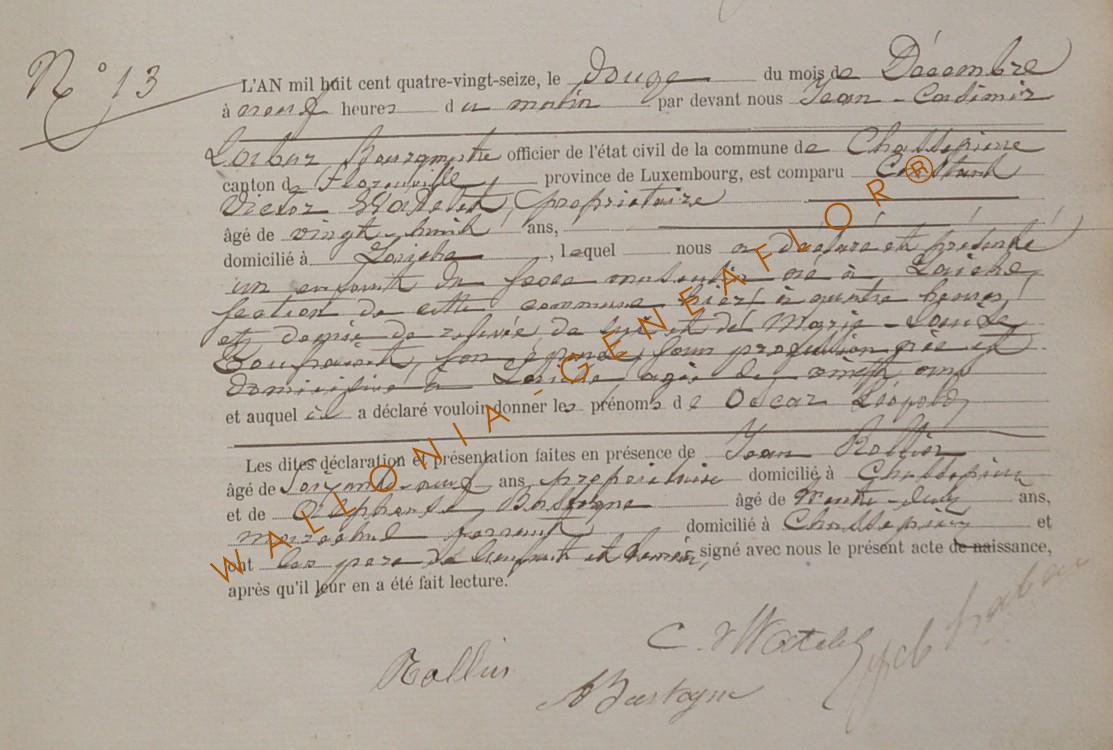 N° 13
L'AN mil huit cent quatre-vingt-seize, le douze du mois de Décembre
à neuf heures du matin par devant nous Jean-Casimir
Bourgmestre officier de l'état civil de la commune de Chassepierre
canton de Florenville, province de Luxembourg, est comparu Constant
Victor Watelet, propriétaire
âgé de vingt-huit ans,
domicilié à Laiche, lequel nous a déclaré et présenté
un enfant du sexe masculin né à Laiche
section de cette commune hier, à quatre heures
et demie de relevée de lui et de Marie-Louise
son épouse, sans profession née et
domiciliée à Laiche âgée de vingt ans
et auquel il a déclaré vouloir donner les prénoms de Oscar Léopold
Les dites déclaration et présentation faites en présence de Jean Rollin
âgé de soixante-neuf ans, propriétaire domicilié à Chassepierre
et de Alphonse Bastogne âgé de trente-deux ans,
maréchal ferrant domicilié à Chassepierre et
ont les père de l'enfant et témoins, signé avec nous le présent acte de naissance,
après qu'il leur en a été fait lecture.
C. V Watelet
Rollin
A Bastogne
WALLONIA-GENEAFLOR®